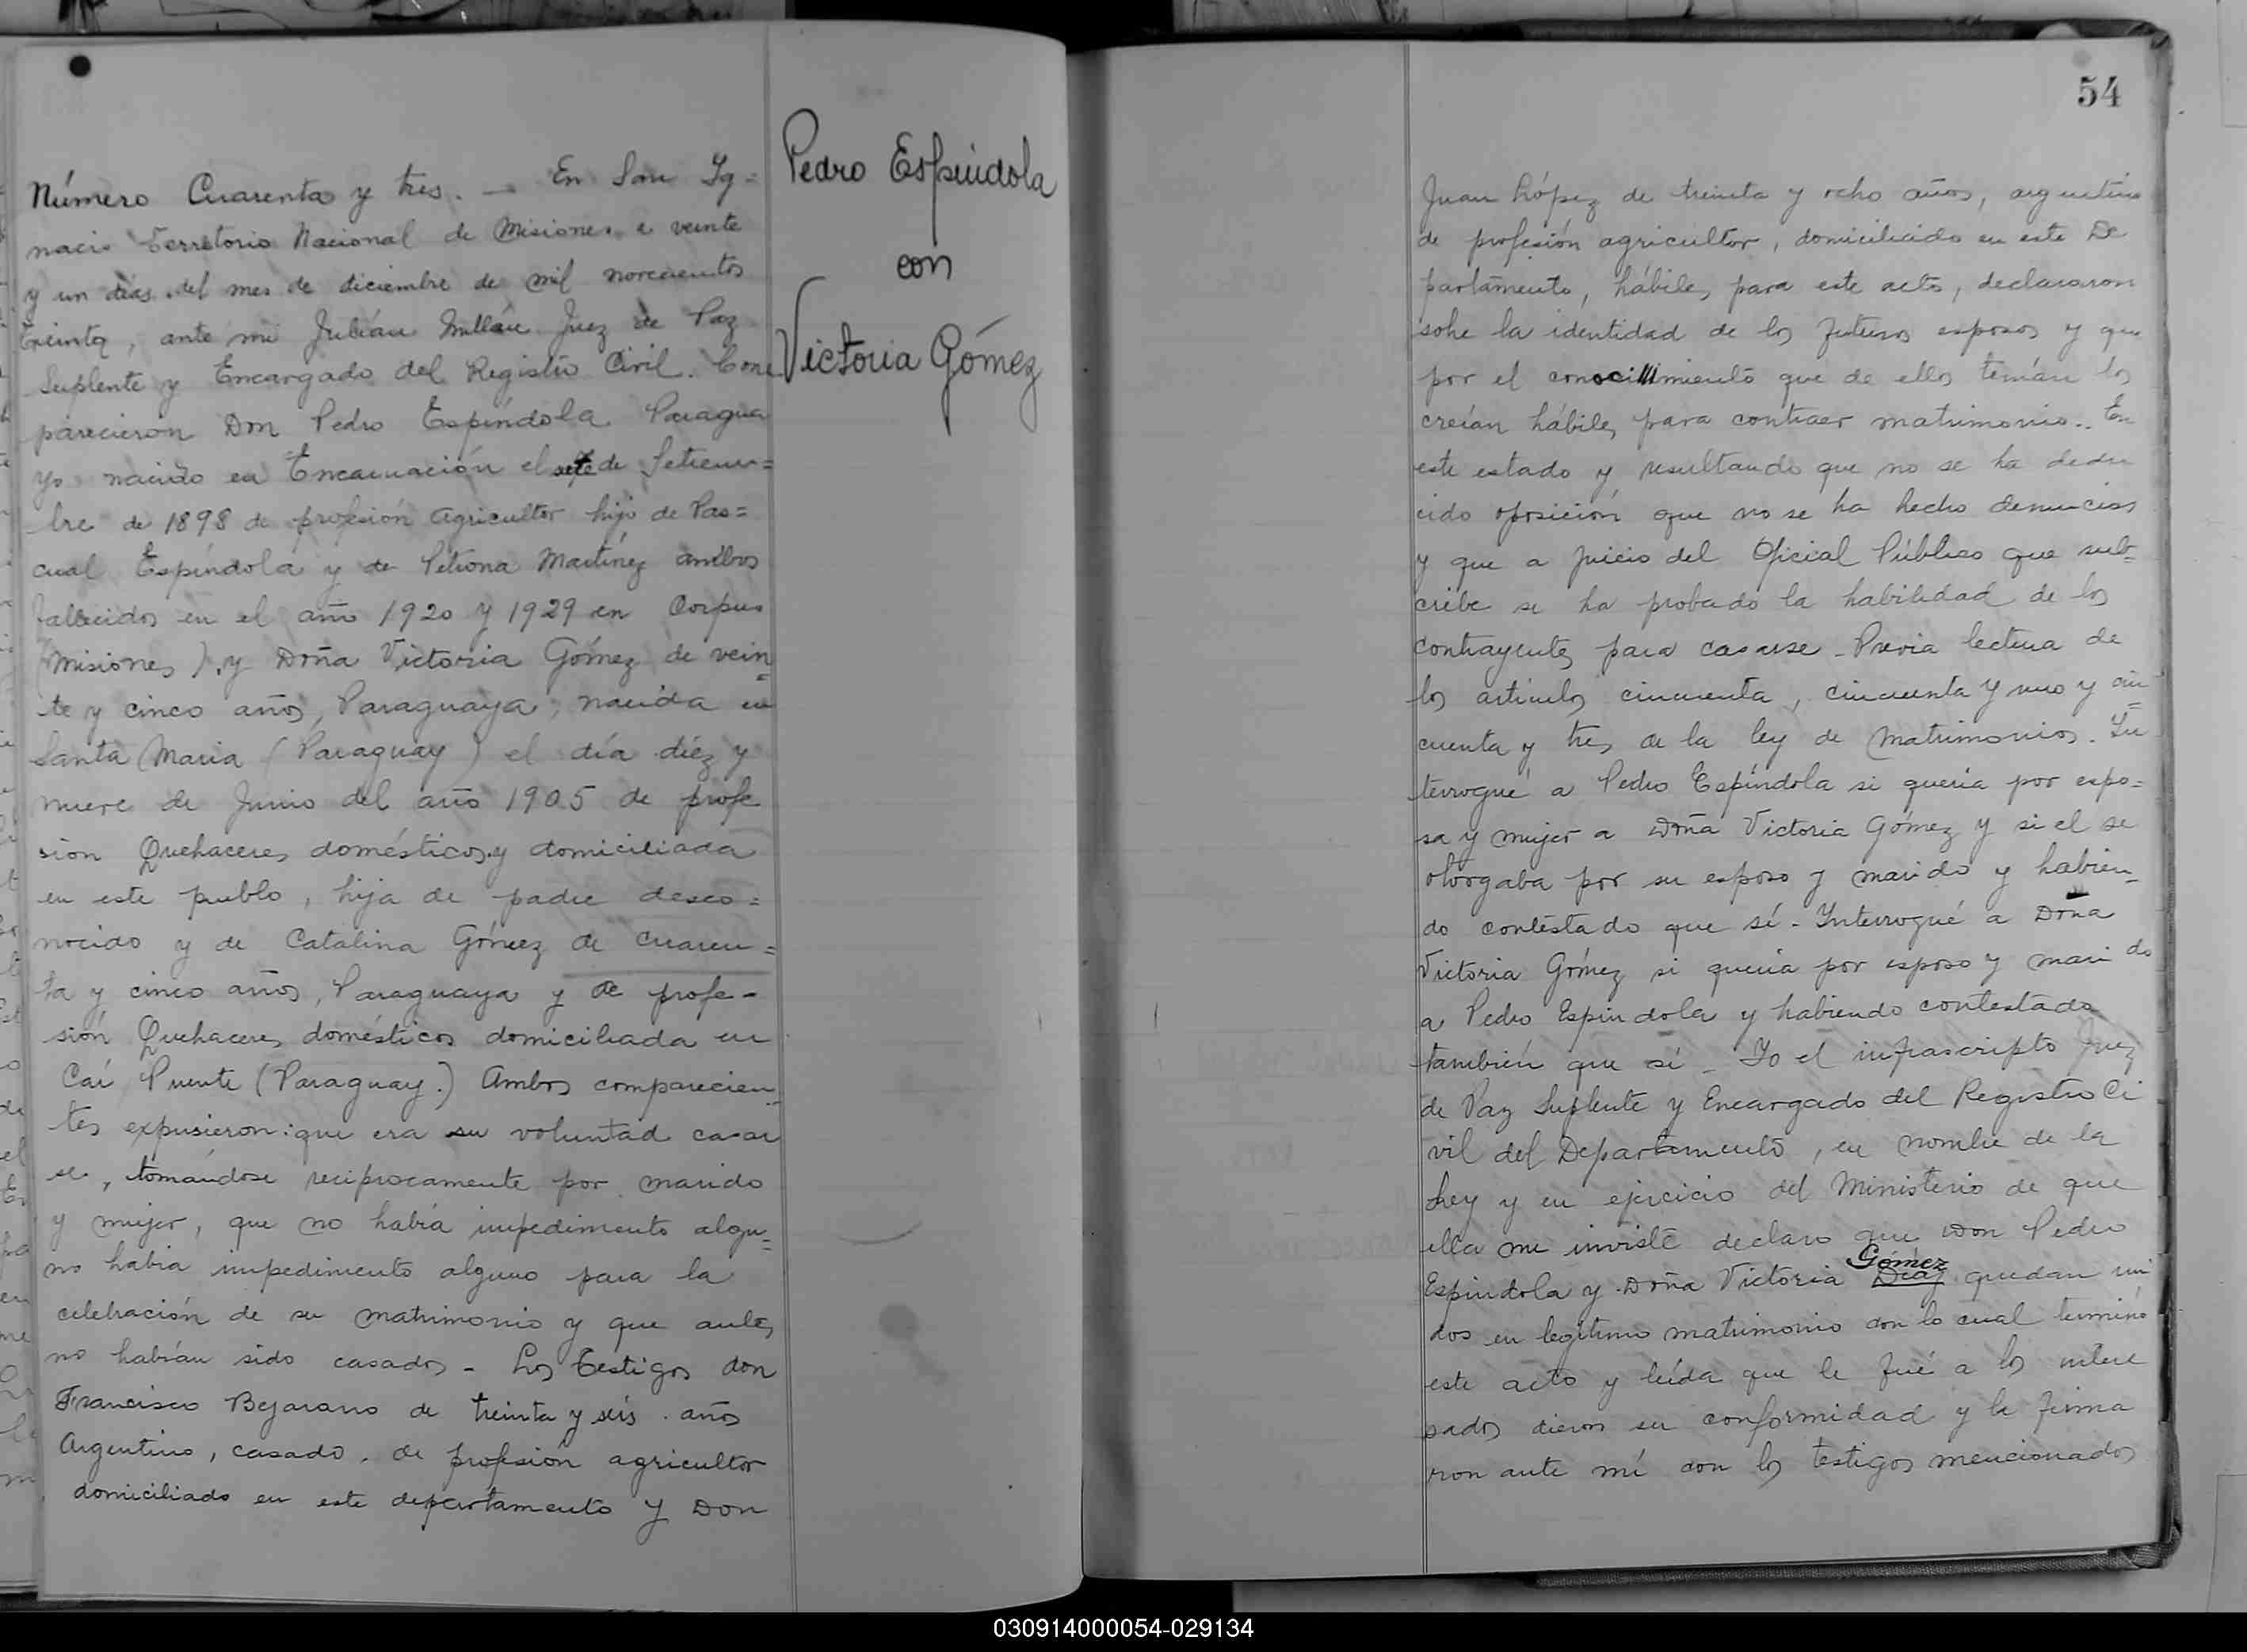 Número Cuarenta y tres. — En San Ig=
nacio Territorio Nacional de Misiones a veinte
y un días del mes de diciembre de mil novecientos
treinta, ante mi Julián Millán Juez de Paz
Suplente y Encargado del Registro Civil. Com
parecieron Don Pedro Espíndola Paragua
yo nacido en Encarnación el siete de Setiem=
bre de 1898 de profesión agricultor hijo de Pas=
cual Espíndola y de Petrona Martínez ambos
fallecidos en el año 1920 y 1929 en Corpus
(Misiones). y Doña Victoria Gómez de vein=
te y cinco años, Paraguaya, nacida en
Santa Maria (Paraguay) el día diéz y
nueve de Junio del año 1905 de profe
sión Quehaceres domésticos y domiciliada
en este pueblo, hija de padre desco=
nocido y de Catalina Gómez de cuaren=
ta y cinco años, Paraguaya y de profe-
sión Quehaceres domésticos domiciliada en
Caí Puente (Paraguay.) Ambos comparecien=
tes expusieron: que era su voluntad casar
se, tomándose reciprocamente por marido
y mujer, que no había impedimento algu=
no habia impedimento alguno para la
celebración de su matrimonio y que antes
no habían sido casados - Los testigos don
Francisco Bejarano de treinta y seis años
Argentino, casado, de profesión agricultor
domiciliado en este departamento y Don
Pedro Espíndola
con
Victoria Gómez
54
Juan López de treinta y ocho años, argentino
de profesión agricultor, domiciliado en este De
partamento, hábiles para este acto, declararon
sobre la identidad de los futuros esposos y que
por el conocimiento que de ellos tenían los
creían hábiles para contraer matrimonio.. En
este estado y resultando que no se ha dedu
cido oposición que no se ha hecho denuncias
y que a juicio del Oficial Público que sub=
cribe se ha probado la habilidad de los
contrayentes para casarse - Previa lectura de
los artículos cincuenta, cincuenta y uno y cin=
cuenta y tres de la ley de Matrimonios. In
terrogué a Pedro Espíndola si quería por espo=
sa y mujer a Doña Victoria Gómez y si el se
otorgaba por su esposo y marido y habien-
do contestado que sí - Interrogué a Doña
Victoria Gómez si quería por esposo y marido
a Pedro Espindola y habiendo contestado
también que sí - Yo el infrascripto Juez
de Paz Suplente y Encargado del Registro Ci
vil del Departamento, en nombre de la
Ley y en ejercicio del Ministerio de que
ella me inviste declaro que Don Pedro
Gómez
Espindola y Doña Victoria Díaz quedan uni
dos en legítimo matrimonio con lo cual terminó
este acto y leída que le fué a los intere
sados dieron su conformidad y la firma
ron ante mí con los testigos mencionados
030914000054-029134